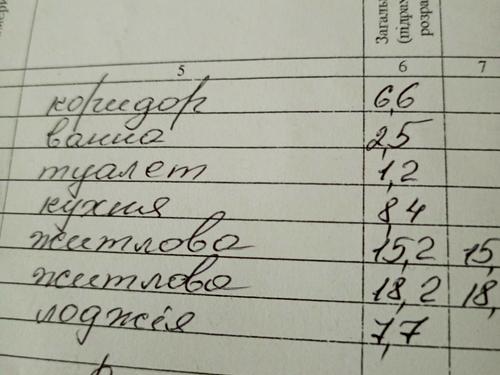 Загаль
(підрах
розра
5 6 7
коридор 6,6
ванна 2,5
туалет 1,2
кухня 8,4
житлова 15,2 15,
житлова 18,2 18,
лоджія 7,7